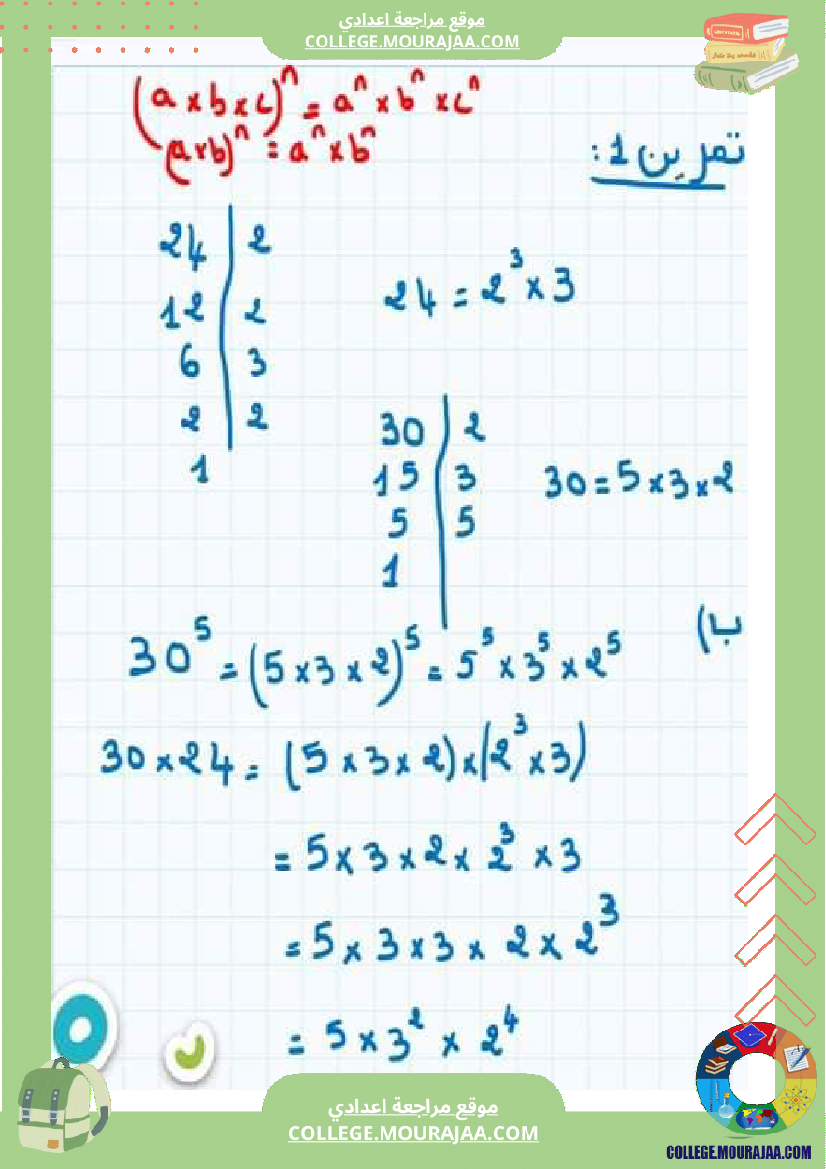 موقع مراجعة اعدادي
COLLEGE.MOURAJAA.COM
(a×b×c)ⁿ = aⁿ×bⁿ×cⁿ
(a×b)ⁿ = aⁿ×bⁿ
تمرين 1:
24 | 2
12 | 2
6 | 3
2 | 2
1
24 = 2³×3
30 | 2
15 | 3
5 | 5
1
30 = 5×3×2
ب)
30⁵ = (5×3×2)⁵ = 5⁵×3⁵×2⁵
30×24 = (5×3×2)×(2³×3)
= 5×3×2×2³×3
= 5×3×3×2×2³
= 5×3²×2⁴
موقع مراجعة اعدادي
COLLEGE.MOURAJAA.COM
COLLEGE.MOURAJAA.COM